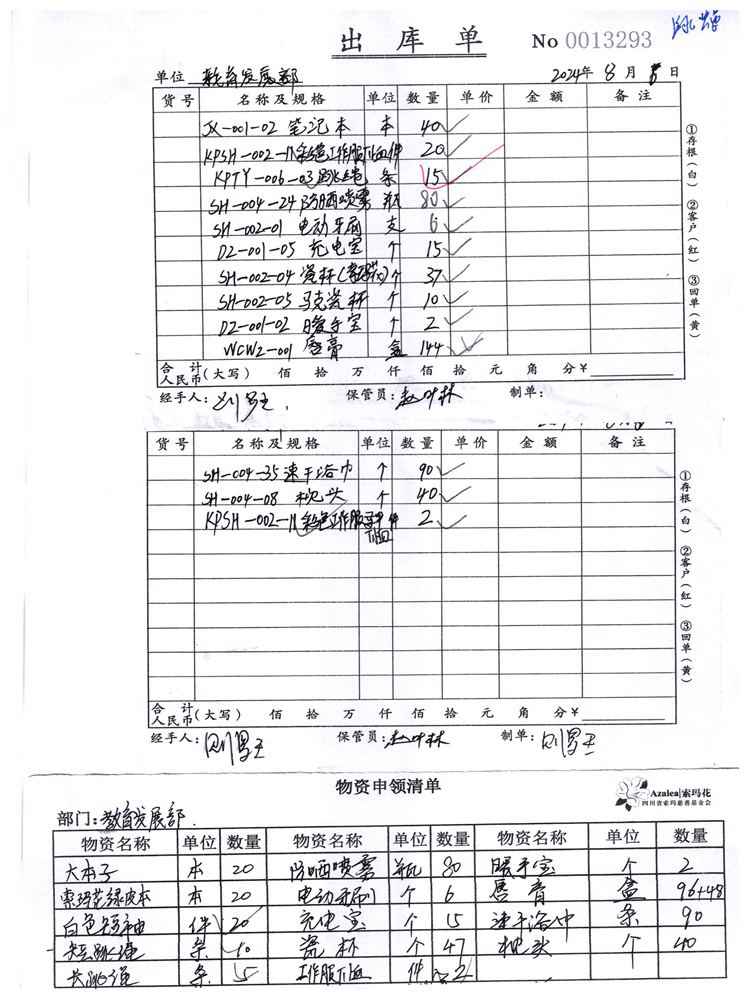 出库单 No 0013293
单位 教育发展部 2024年 8月 日
货号 名称及规格 单位 数量 单价 金额 备注
JX-001-02 笔记本 本 40
KPSH-002-11 彩色工作服T恤 件 20
KPTY-006-03 跳绳 条 15
SH-004-24 防晒喷雾 瓶 80
SH-002-01 电动牙刷 支 6
DZ-001-05 充电宝 个 15
SH-002-04 瓷杯 个 37
SH-002-05 马克瓷杯 个 10
DZ-001-02 暖手宝 个 2
WCWZ-001 唇膏 盒 144
合计人民币(大写) 佰 拾 万 仟 佰 拾 元 角 分 ¥
经手人: 保管员: 赵叶林 制单:
①存根(白) ②客户(红) ③回单(黄)
货号 名称及规格 单位 数量 单价 金额 备注
SH-004-35 速干浴巾 个 90
SH-004-08 枕头 个 40
KPSH-002-11 彩色工作服T恤 件 2
合计人民币(大写) 佰 拾 万 仟 佰 拾 元 角 分 ¥
经手人: 保管员: 赵叶林 制单:
①存根(白) ②客户(红) ③回单(黄)
物资申领清单 Azalea|索玛花
四川省索玛慈善基金会
部门: 教育发展部
物资名称 单位 数量 物资名称 单位 数量 物资名称 单位 数量
大本子 本 20 防晒喷雾 瓶 80 暖手宝 个 2
索玛花绿皮本 本 20 电动牙刷 个 6 唇膏 盒 96+48
白色短袖 件 20 充电宝 个 15 速干浴巾 条 90
短跳绳 条 10 瓷杯 个 47 枕头 个 40
长跳绳 条 5 工作服T恤 件 2